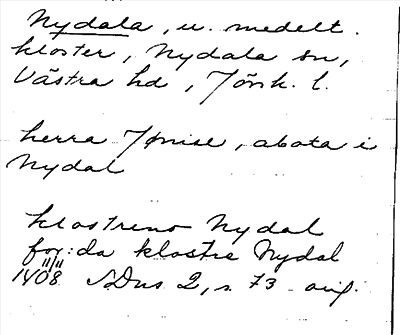 Nydala, u. medelt.
kloster, Nydala sn,
Västra hd, Jönk. l.
herra Jønise, abota i
Nydal
klostreno Nydal
for:da klostre Nydal
11/11
1408 SDns 2, s. 73 orig.